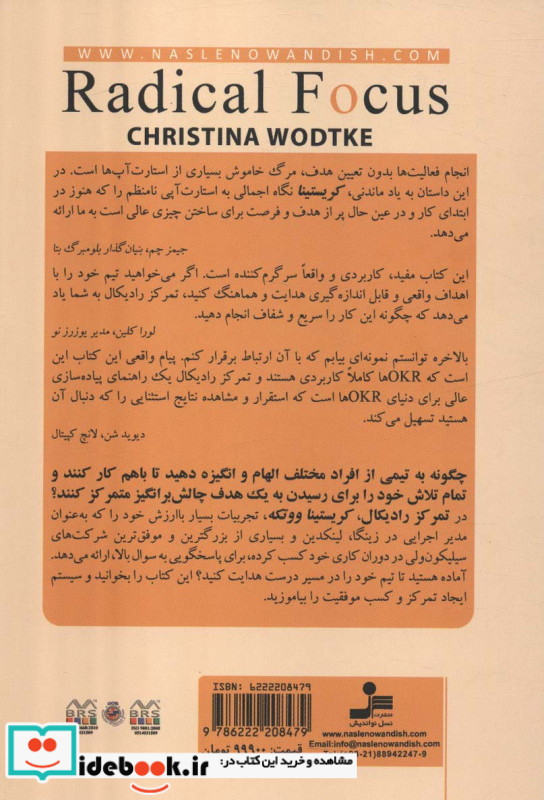 WWW.NASLENOWANDISH.COM
Radical Focus
CHRISTINA WODTKE
انجام فعالیت‌ها بدون تعیین هدف، مرگ خاموش بسیاری از استارت‌آپ‌ها است. در
این داستان به یاد ماندنی، کریستینا نگاه اجمالی به استارت‌آپی نامنظم را که هنوز در
ابتدای کار و در عین حال پر از هدف و فرصت برای ساختن چیزی عالی است به ما ارائه
می‌دهد.
جیمز چم، بنیان‌گذار بلومبرگ بتا
این کتاب مفید، کاربردی و واقعاً سرگرم‌کننده است. اگر می‌خواهید تیم خود را با
اهداف واقعی و قابل اندازه‌گیری هدایت و هماهنگ کنید، تمرکز رادیکال به شما یاد
می‌دهد که چگونه این کار را سریع و شفاف انجام دهید.
لورا کلین، مدیر یوزرز نو
بالاخره توانستم نمونه‌ای بیابم که با آن ارتباط برقرار کنم. پیام واقعی این کتاب این
است که OKRها کاملاً کاربردی هستند و تمرکز رادیکال یک راهنمای پیاده‌سازی
عالی برای دنیای OKRها است که استقرار و مشاهده نتایج استثنایی را که دنبال آن
هستید تسهیل می‌کند.
دیوید شن، لانچ کپیتال
چگونه به تیمی از افراد مختلف الهام و انگیزه دهید تا باهم کار کنند و
تمام تلاش خود را برای رسیدن به یک هدف چالش‌برانگیز متمرکز کنند؟
در تمرکز رادیکال، کریستینا ووتکه، تجربیات بسیار باارزش خود را که به‌عنوان
مدیر اجرایی در زینگا، لینکدین و بسیاری از بزرگترین و موفق‌ترین شرکت‌های
سیلیکون‌ولی در دوران کاری خود کسب کرده، برای پاسخگویی به سوال بالا، ارائه می‌دهد.
آماده هستید تا تیم خود را در مسیر درست هدایت کنید؟ این کتاب را بخوانید و سیستم
ایجاد تمرکز و کسب موفقیت را بیاموزید.
ISBN: 6222208479
9 786222 208479
قیمت: ۹۹۹۰۰ تومان
BRS
BRS
نسل نواندیش
www.naslenowandish.com
Email:info@naslenowandish.com
88942247-9
مشاهده و خرید این کتاب در:
idebook.ir